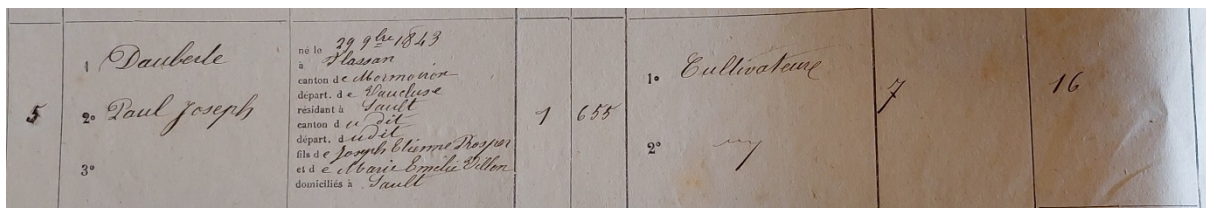 5
1 Dauberte
2º Paul Joseph
3º
né le 29 9bre 1843
à Flassan
canton de Mormoiron
départ. de Vaucluse
résidant à Sault
canton dudit
départ. dudit
fils de Joseph Etienne Prosper
et de Marie Emilie Villon
domiciliés à Sault
1
655
1º Cultivateur
2º
7
16